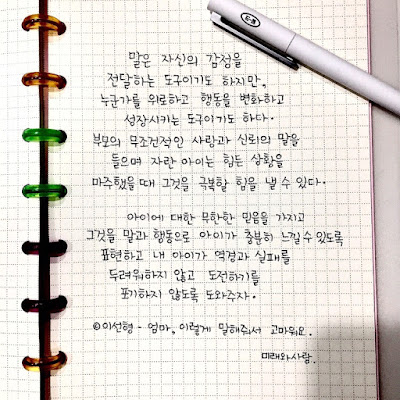 말은 자신의 감정을
전달하는 도구이기도 하지만,
누군가를 위로하고 행동을 변화하고
성장시키는 도구이기도 하다.
부모의 무조건적인 사랑과 신뢰의 말을
들으며 자란 아이는 힘든 상황을
마주했을 때 그것을 극복할 힘을 낼 수 있다.
아이에 대한 무한한 믿음을 가지고
그것을 말과 행동으로 아이가 충분히 느낄 수 있도록
표현하고 내 아이가 역경과 실패를
두려워하지 않고 도전하기를
포기하지 않도록 도와주자.
©이선형 - 엄마, 이렇게 말해줘서 고마워요.
미래와사람.